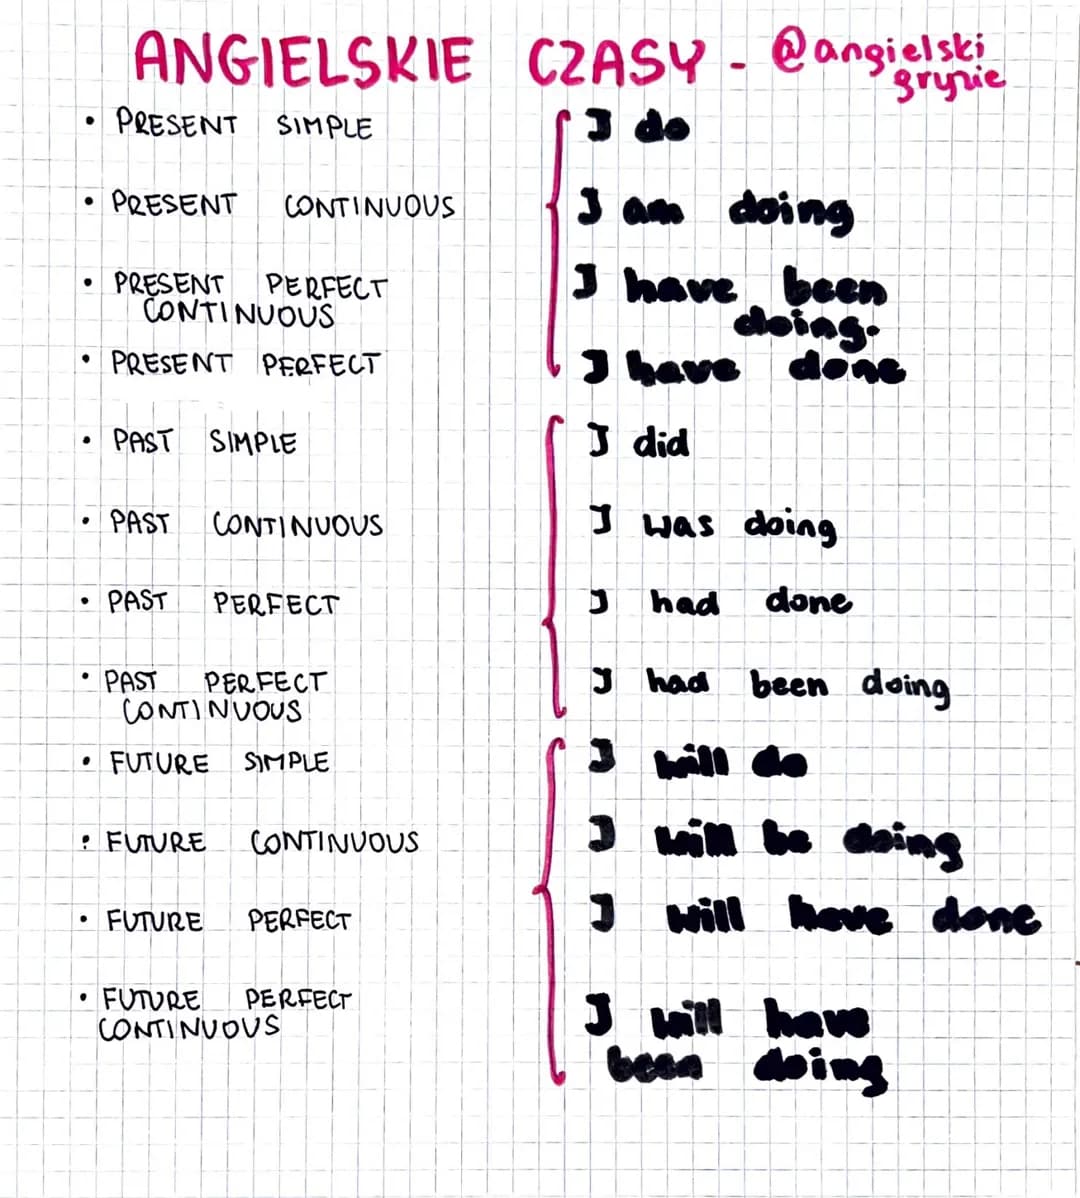 ANGIELSKIE CZASY - @angielski
gryzie
• PRESENT SIMPLE I do
• PRESENT CONTINUOUS I am doing
• PRESENT PERFECT I have been
CONTINUOUS doing.
• PRESENT PERFECT I have done
• PAST SIMPLE I did
• PAST CONTINUOUS I was doing
• PAST PERFECT I had done
• PAST PERFECT I had been doing
CONTINUOUS
• FUTURE SIMPLE I will do
• FUTURE CONTINUOUS I will be doing
• FUTURE PERFECT I will have done
• FUTURE PERFECT
CONTINUOUS I will have
been doing